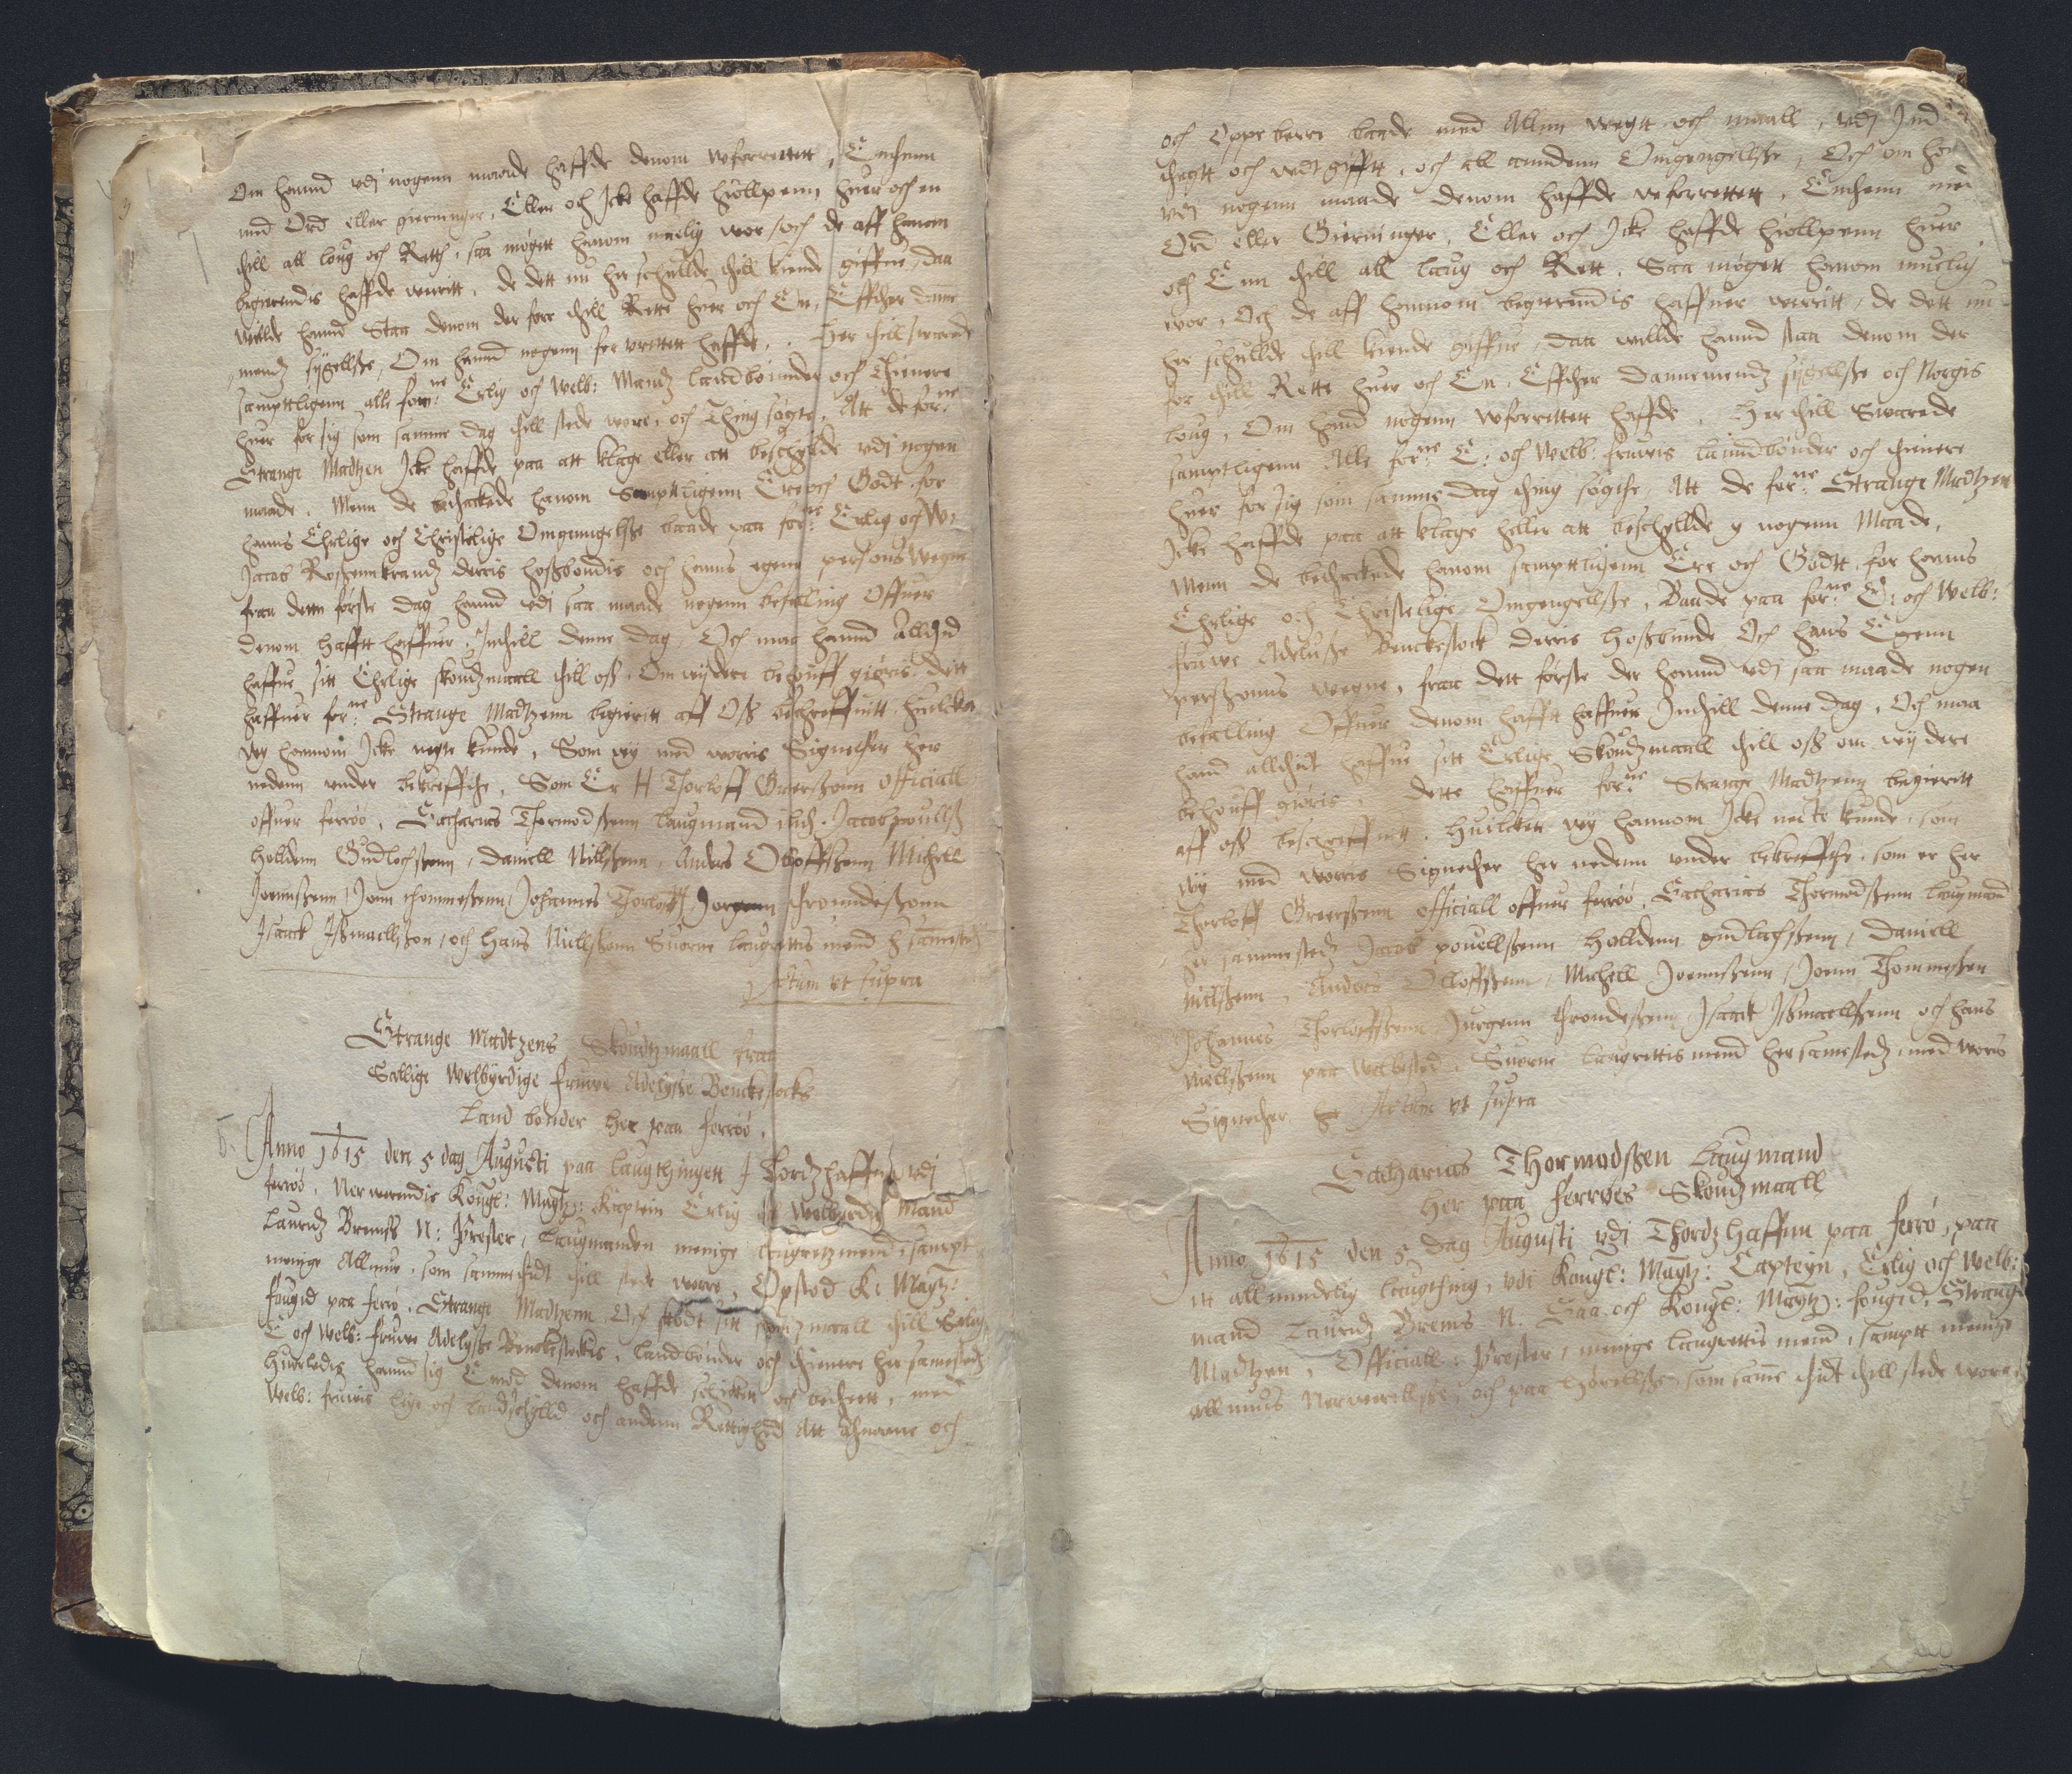 Om hannd vdj nogenn maade haffde denom wforrettett, Enthenn
med Ord eller gierninger, Eller och Icke haffde hiollpenn huer och en
thill all loug och Retth, saa mögitt hanom muelig wor, och de aff hanom
begierendis haffde werritt, de dett nu her schullde thill kiende giffue, daa
willde hannd Staa denom der forre thill Rette huer och En, Effther danne
mendz sÿgellsse, Om hannd nogenn forvrettett haffde. Her thill suarede
sampttligenn alle forne: Erlig och Welb: Mandz landbönnder och Thienere
huer for sig som samme dag thill stede wore, och Thing sögte, Att de forne:
Strange Madtzen Icke haffde paa att klage eller att beschÿlde vdj nogen
maade. Menn de bethackede hanom Sampttligenn Ere och Godt for
hanns Ehrlige och Christelige Omgaangelsse baade paa forne: Erlig och W:
Jacob Rossennkrandz derris hossbondis och hanns egene persons Wegne
fraa denn förste dag hannd vdj saa maade nogenn befalling Offuer
denom hafftt haffuer, Indthill denne dag, Och maa hannd Alltid
haffue sitt Ehrlige skoudzmaall thill oss, Om wÿdere behouff giöris. dett
haffuer forne: Strange Madtzenn begierett aff Oss beschreffuitt huilcket
wÿ hannom Icke negte kunde, Som wÿ med worris Signether her
nedenn vnder bekreffthe, Som Er H Thorloff Greerssonn officiall
offuer ferröö, Sacharias Thormodssenn laugmand ibid. Jacob poulls
Holldenn Gudlochssenn, Daniell Nillssenn, Anders Olloffssenn Michell
Joennssenn, Joenn thommessenn, Johannes Thorloff, Jorgenn throundessonn
Isaack Issmaellsson, och Hans Niellssenn Suorne laugrettis mend h samested
Actum vt supra
Strange Madtzens Skoudtzmaall fraa
Sallige Welbÿrdige fruwe Adelÿsse Benckestocks
Land bönder Her paa ferröö.
Anno 1615 den 5 dag Augusti paa laugthingett I Thordzhaffn vdj
ferröö, Nerwerendis Kongl: Maytz: Kaptein Erlig och Welbÿrdig Mand
Lauridz Bremss N: Prester, laugmanden menige laugretzmend, sampt
menige Allmue, som samme thidt thill stede worre, Opstod K: Maytz:
fougid paa ferrö, Strange Madtzenn Och sködt sitt skoudzmaall thill Erlig
E och Welb: fruwe Adelÿsse Benckestockis, landbönder och thienere her samestedz
Huorledis hannd sig Emod denom haffde schicket och bethett, med
Welb: fruwis leÿe och landschÿlld och andenn Rettighed Att annamme och
och Oppeberre baade med Allenn wegtt och maall, vdj Ind
thegtt och vdtgifftt, och all anndenn Omgengellsse, Och om hand
vdj nogenn maade denom haffde weforrettett, Enthenn med
Ord eller Gierninger, Eller och Icke haffde hiollpenn huer
och Enn thill all laug och Rett, Saa mögett hanom muelig
wor, Och de aff hannom begierendis haffuer werritt, de dett nu
her schullde thill kiende giffue, daa willde hannd staa denom der
for thill Rette huer och En, Effther Dannemendz sÿgellsse och Norgis
loug, Om hand nogenn wforrettett haffde, Her thill Swarede
samptligenn Alle forne: E: och Welb: fruwis lanndbönder och thienere
huer for sig som samme dag thing sögthe, Att de forne: Strange Madtzen
Icke haffde paa att klage heller att beschÿllde y nogenn Maade,
Menn de bethackede hanom sampttligenn Ere och Godtt for hanns
Ehrlige och Christelige Omgengellsse, Baade paa forne: E: och Welb:
fruwe Adelusse Benckestock derris Hossbunde Och hans Egenn
perssonns wegne, fraa dett förste der hannd vdj saa maade nogen
befalling Offuer denom hafftt haffuer Indthill denne dag, Och maa
hand allthidt haffue sitt Erlige Skoudzmaall thill oss om wÿdere
behouff giöris, dette haffuer forne: Strange Madtzenn begieritt
aff oss beschreffuett, Huilckett wÿ hannom Icke necte kunde, som
wÿ med worris Signether her nedenn vnder bekreffthe, som er Her
Thorloff Greerssenn officiall offuer ferröö, Sacharias Thormodssenn laugmand
her sammestedz Jacob pouellssenn Holldenn gudlachssenn, Daniell
Nillssenn, Anders Olloffssenn, Michell Joennssenn, Joenn Thommessen
Johannes Thorloffssenn Jurgenn throndessenn Isaack Issmaellssenn och Hans
Niellssenn paa Welbestad, Suorne laugrettismend her samestedz, med worris
Signether Actum vt supra
Sacharias Thormodssen Laugmand
Her paa ferröes Skoudzmaall
Anno 1615 den 5 dag Augusti vdj Thordzhaffnn paa ferrö, paa
itt allmindelig laugthing, vdi Kongl: Maytz: Capteÿn, Erlig och Welb:
mand Lauridz Brems N. Saa och Kongl: Maytz: fougid, Strange
Madtzen, Officiall, Prester, menige laugrettis mend, samptt menige
allmues Nerwerellsse, och paa hörellsse som same thidt thill stede wore